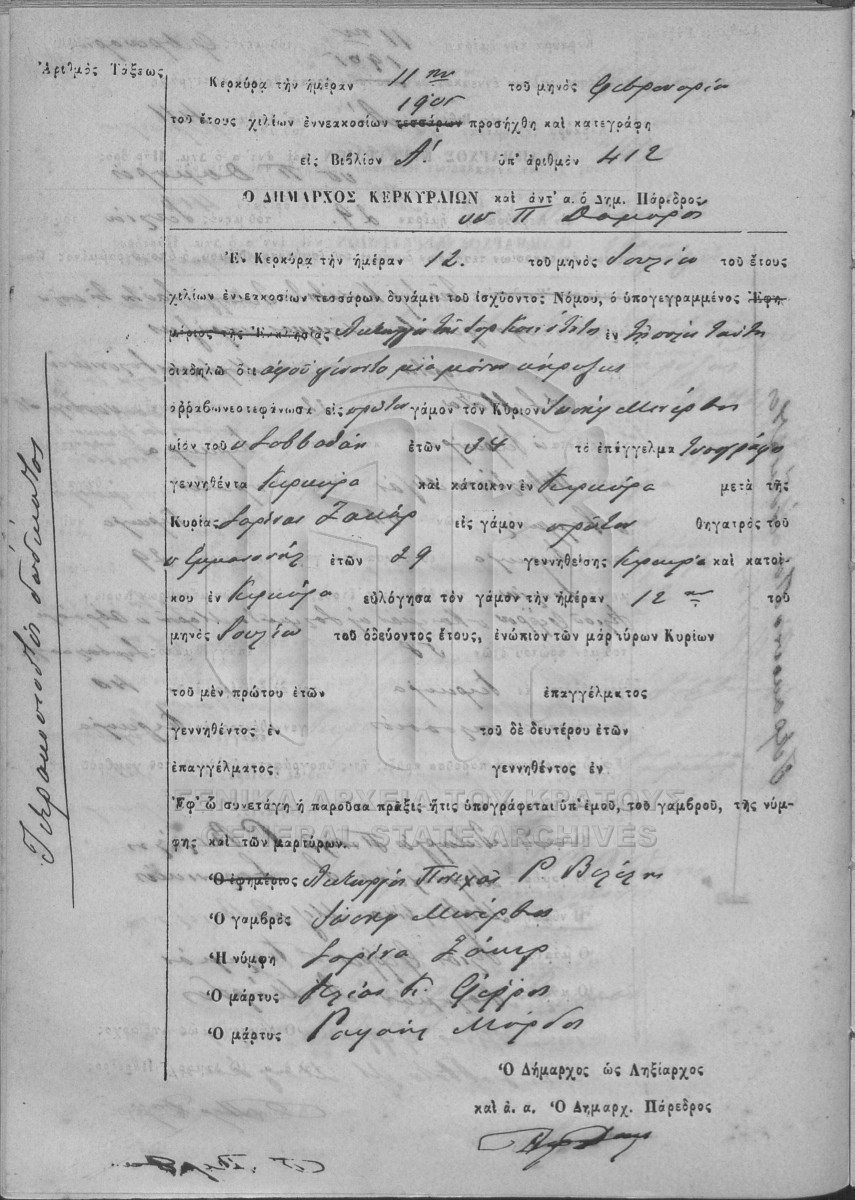 Ἀριθμὸς Τάξεως
Κερκύρᾳ τὴν ἡμέραν 11ην τοῦ μηνὸς Φεβρουαρίου
1905
τοῦ ἔτους χιλίων ἐννεακοσίων τεσσάρων προσήχθη καὶ κατεγράφη
εἰς Βιβλίον Α! ὑπ' ἀριθμὸν 412
Ὁ ΔΗΜΑΡΧΟΣ ΚΕΡΚΥΡΑΙΩΝ καὶ ἀντ' α. ὁ Δημ. Πάρεδρος
Π
Ἐν Κερκύρᾳ τὴν ἡμέραν 12. τοῦ μηνὸς Ἰουλίου τοῦ ἔτους
χιλίων ἐννεακοσίων τεσσάρων δυνάμει τοῦ ἰσχύοντος Νόμου, ὁ ὑπογεγραμμένος Ἐφη-
μέριος τῆς Ἐκκλησίας ἐν τῇ πόλει ταύτῃ
διαδηλῶ ὅτι ἀφοῦ ἐγένετο μία μόνη κήρυξις
ἀρραβωνεοτεφάνωσα εἰς πρῶτον γάμον τὸν Κύριον Ἰωσὴφ Μινέρβον
υἱὸν τοῦ Σαββαδάη ἐτῶν 34 τὸ ἐπάγγελμα
γεννηθέντα Κερκύρᾳ καὶ κάτοικον ἐν Κερκύρᾳ μετὰ τῆς
Κυρίας Σαρίνας Ζακάρ εἰς γάμον πρῶτον θηγατρὸς τοῦ
Ἐμμανουὴλ ἐτῶν 29 γεννηθείσης Κερκύρᾳ καὶ κατοί-
κου ἐν Κερκύρᾳ εὐλόγησα τὸν γάμον τὴν ἡμέραν 12ην τοῦ
μηνὸς Ἰουλίου τοῦ ὁδεύοντος ἔτους, ἐνώπιον τῶν μαρτύρων Κυρίων
τοῦ μὲν πρώτου ἐτῶν ἐπαγγέλματος
γεννηθέντος ἐν τοῦ δὲ δευτέρου ἐτῶν
ἐπαγγέλματος γεννηθέντος ἐν
Ἐφ' ᾧ συνετάγη ἡ παροῦσα πρᾶξις ἥτις ὑπογράφεται ὑπ' ἐμοῦ, τοῦ γαμβροῦ, τῆς νύμ-
φης καὶ τῶν μαρτύρων.
Ὁ ἐφημέριος
Ὁ γαμβρὸς Ἰωσὴφ Μινέρβος
Ἡ νύμφη Σαρίνα Ζάκαρ
Ὁ μάρτυς
Ὁ μάρτυς Ραφαὴλ Μόρδος
Ὁ Δήμαρχος ὡς Ληξίαρχος
καὶ ἀ. α. Ὁ Δημαρχ. Πάρεδρος
Τετρακοσιοστὸς δωδέκατος
ΓΕΝΙΚΑ ΑΡΧΕΙΑ ΤΟΥ ΚΡΑΤΟΥΣ
GENERAL STATE ARCHIVES